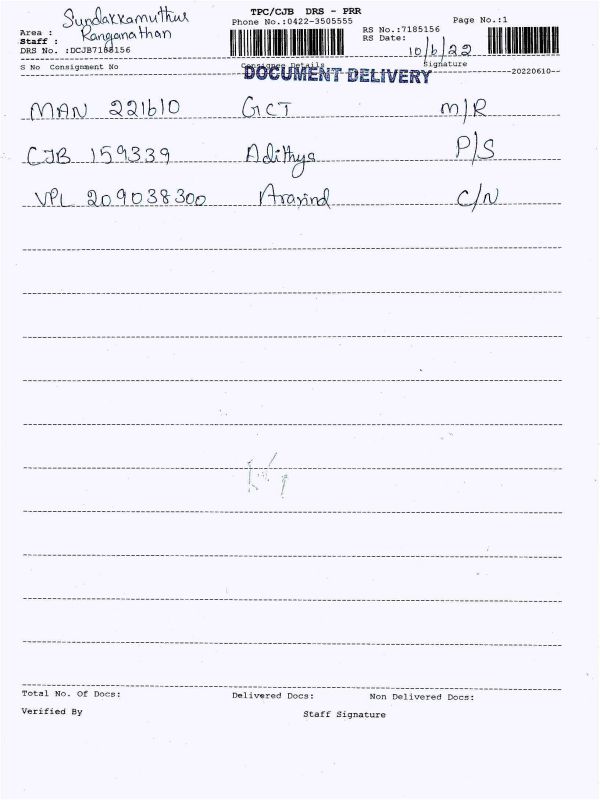 TPC/CJB DRS - PRR
Phone No.:0422-3505555
Page No.:1
Area : Sundakkamuthur
Staff : Ranganathan
DRS No. :DCJB7185156
RS No.:7185156
RS Date: 10/6/22
S No Consignment No Consignee Details Signature
DOCUMENT DELIVERY
--20220610--
MAN 221610 GCT M/R
CJB 159339 Adithya P/S
VPL 209038300 Aravind C/N
Total No. Of Docs: Delivered Docs: Non Delivered Docs:
Verified By Staff Signature